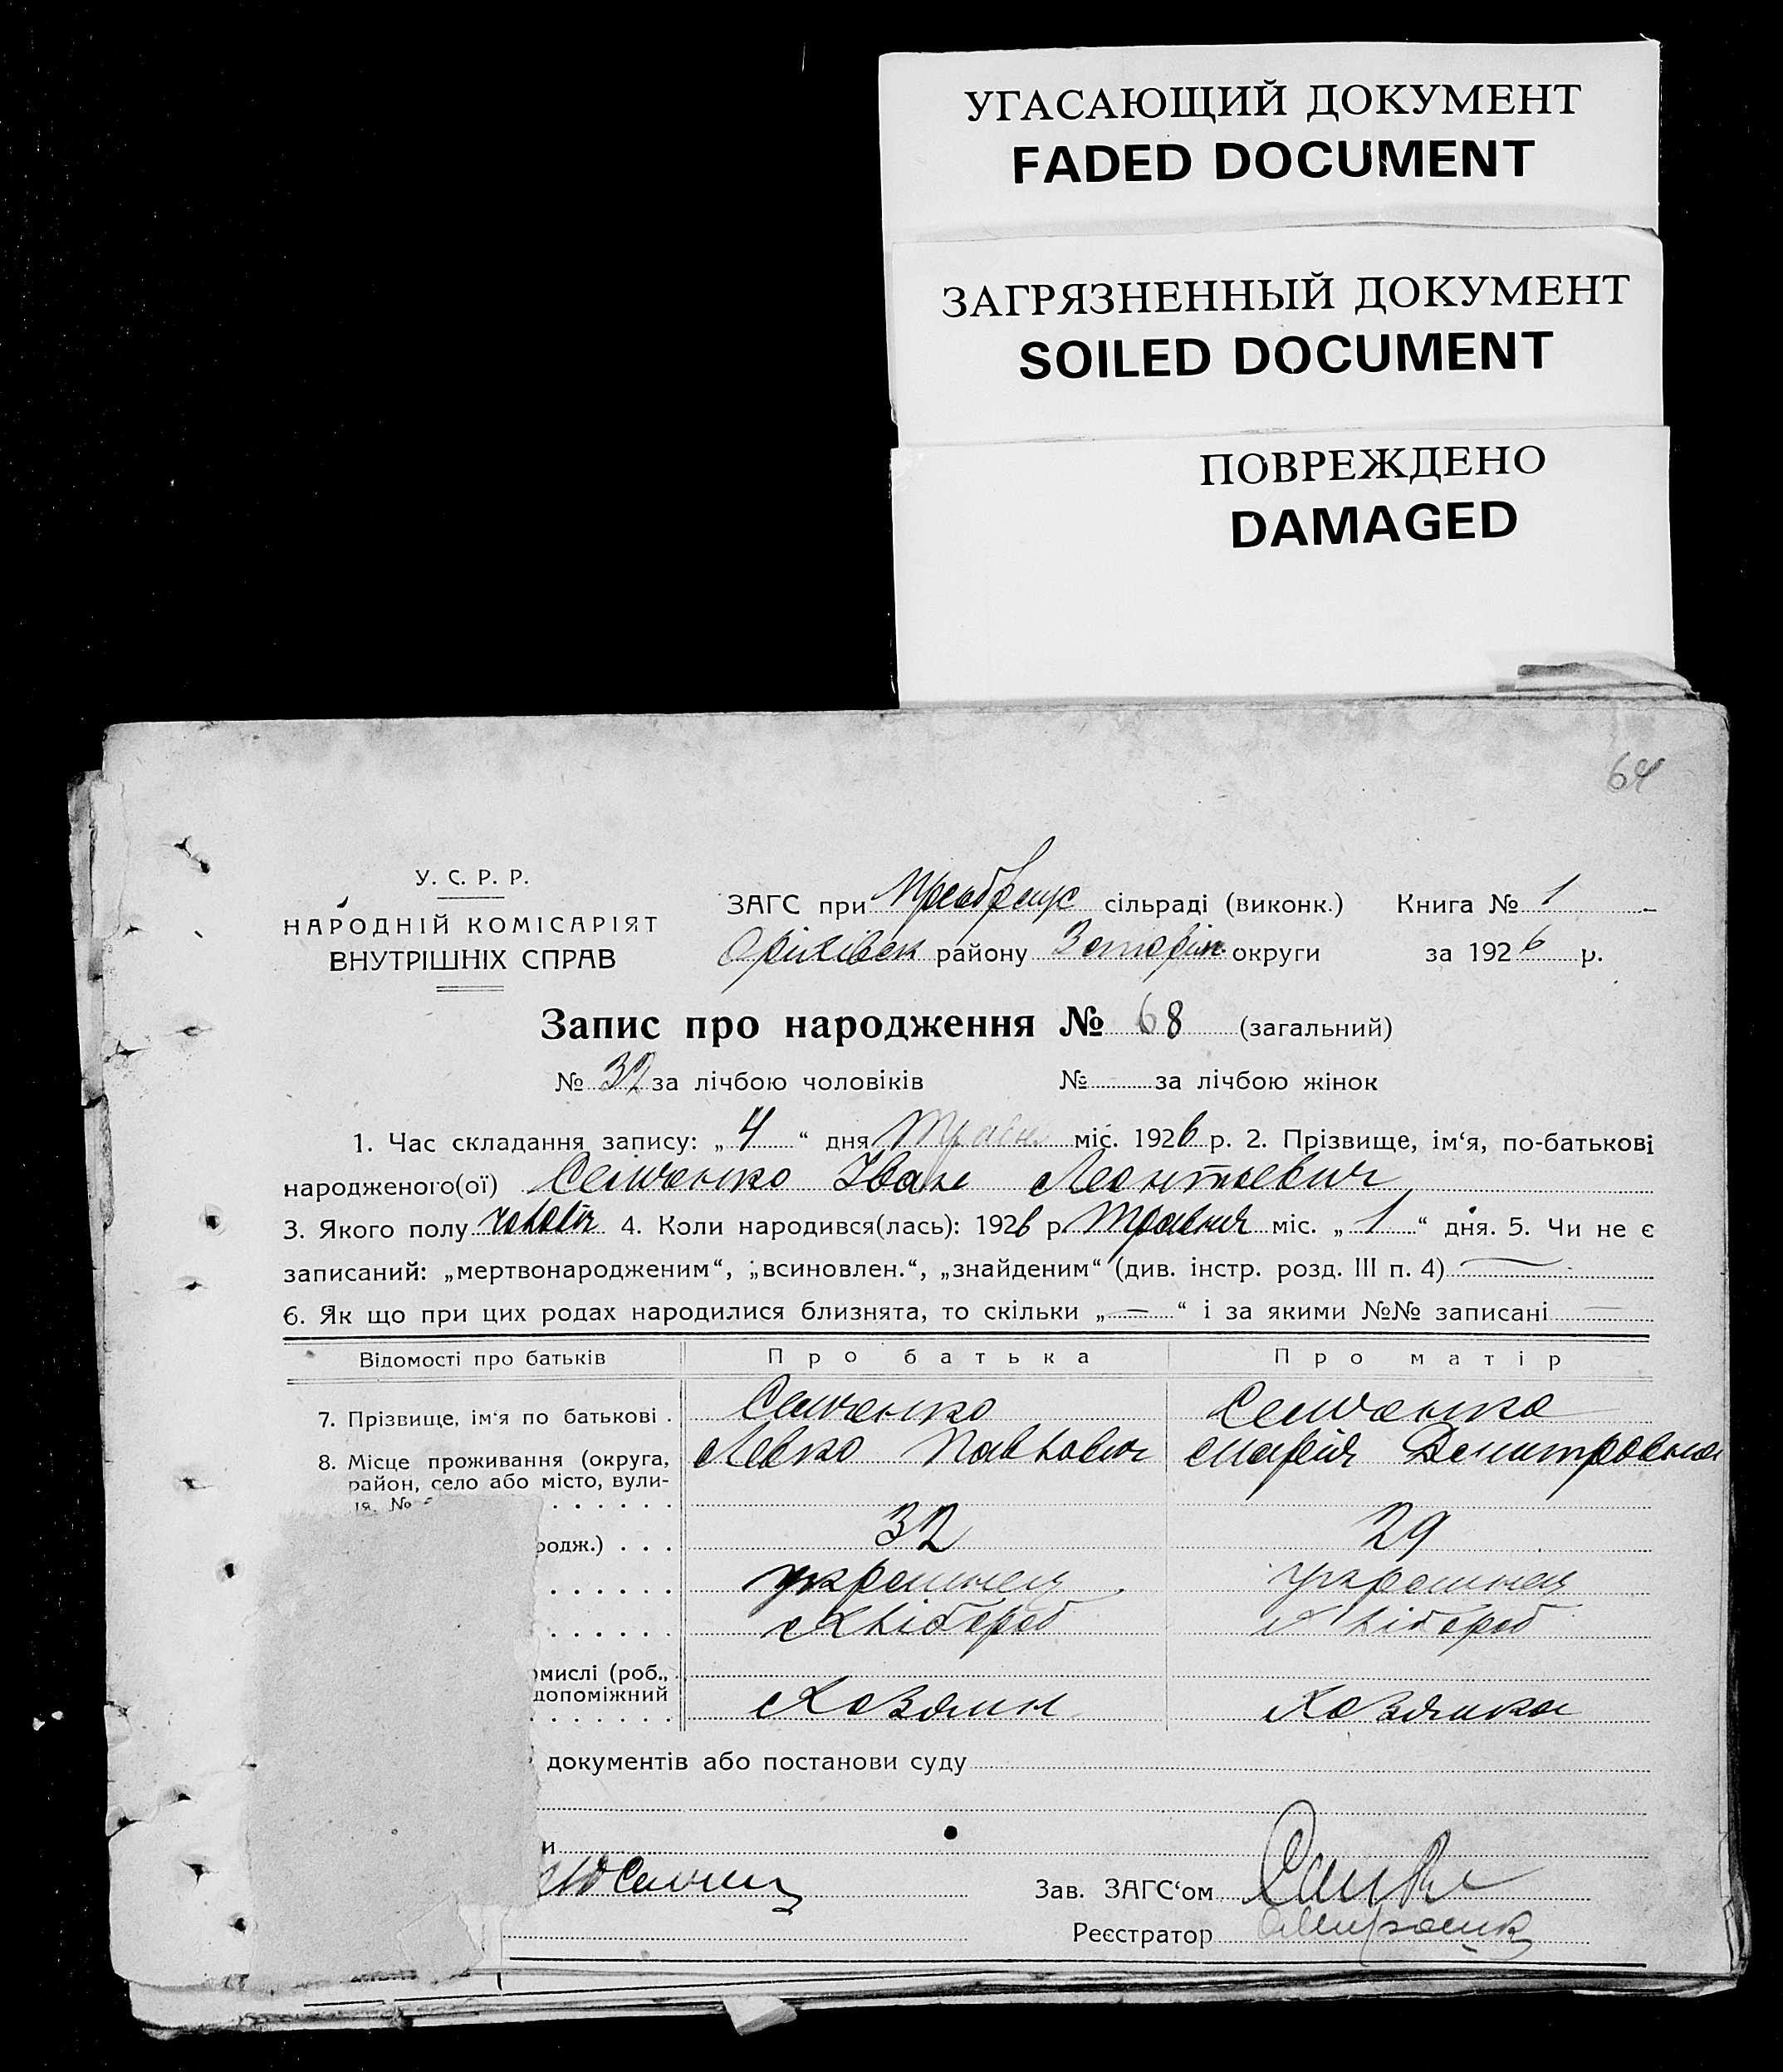 УГАСАЮЩИЙ ДОКУМЕНТ
FADED DOCUMENT
ЗАГРЯЗНЕННЫЙ ДОКУМЕНТ
SOILED DOCUMENT
ПОВРЕЖДЕНО
DAMAGED
64
У. С. Р. Р.
НАРОДНІЙ КОМІСАРІЯТ
ВНУТРІШНІХ СПРАВ
ЗАГС при сільраді (виконк.) Книга № 1
Оріхівськ району округи за 1926 р.
Запис про народження № 68 (загальний)
№ 32 за лічбою чоловіків № за лічбою жінок
1. Час складання запису: „ 4 “ дня Травня міс. 1926 р. 2. Прізвище, ім‘я, по-батькові
народженого(ої) Семченко Іван Леонтьевич
3. Якого полу 4. Коли народився(лась): 1926 р. Травня міс. „ 1 “ дня. 5. Чи не є
записаний: „мертвонародженим“, „всиновлен.“, „знайденим“ (див. інстр. розд. III п. 4)
6. Як що при цих родах народилися близнята, то скільки „ — “ і за якими №№ записані —
Відомості про батьків Про батька Про матір
7. Прізвище, ім‘я по батькові . Семченко Семченко
8. Місце проживання (округа, Левко Павлович Марія Демитровна
район, село або місто, вули-
ця, №
родж.) . . . 32 29
. . . . . .
. . . . . . Хлібороб Хлібороб
омислі (роб.,
допоміжний
. . . . . . . Хозяин Хозяйка
документів або постанови суду
и
Зав. ЗАГС‘ом
Реєстратор